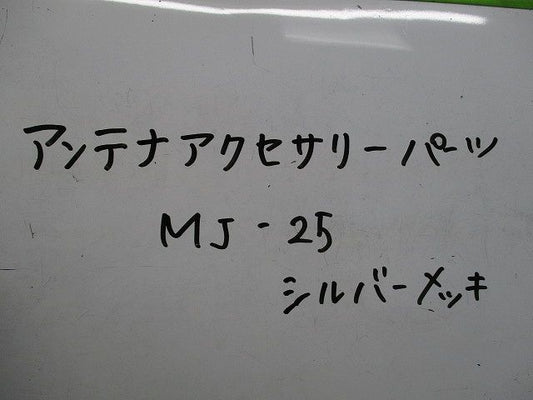 アンテナアクセサリーパーツ
MJ-25
シルバーメッキ